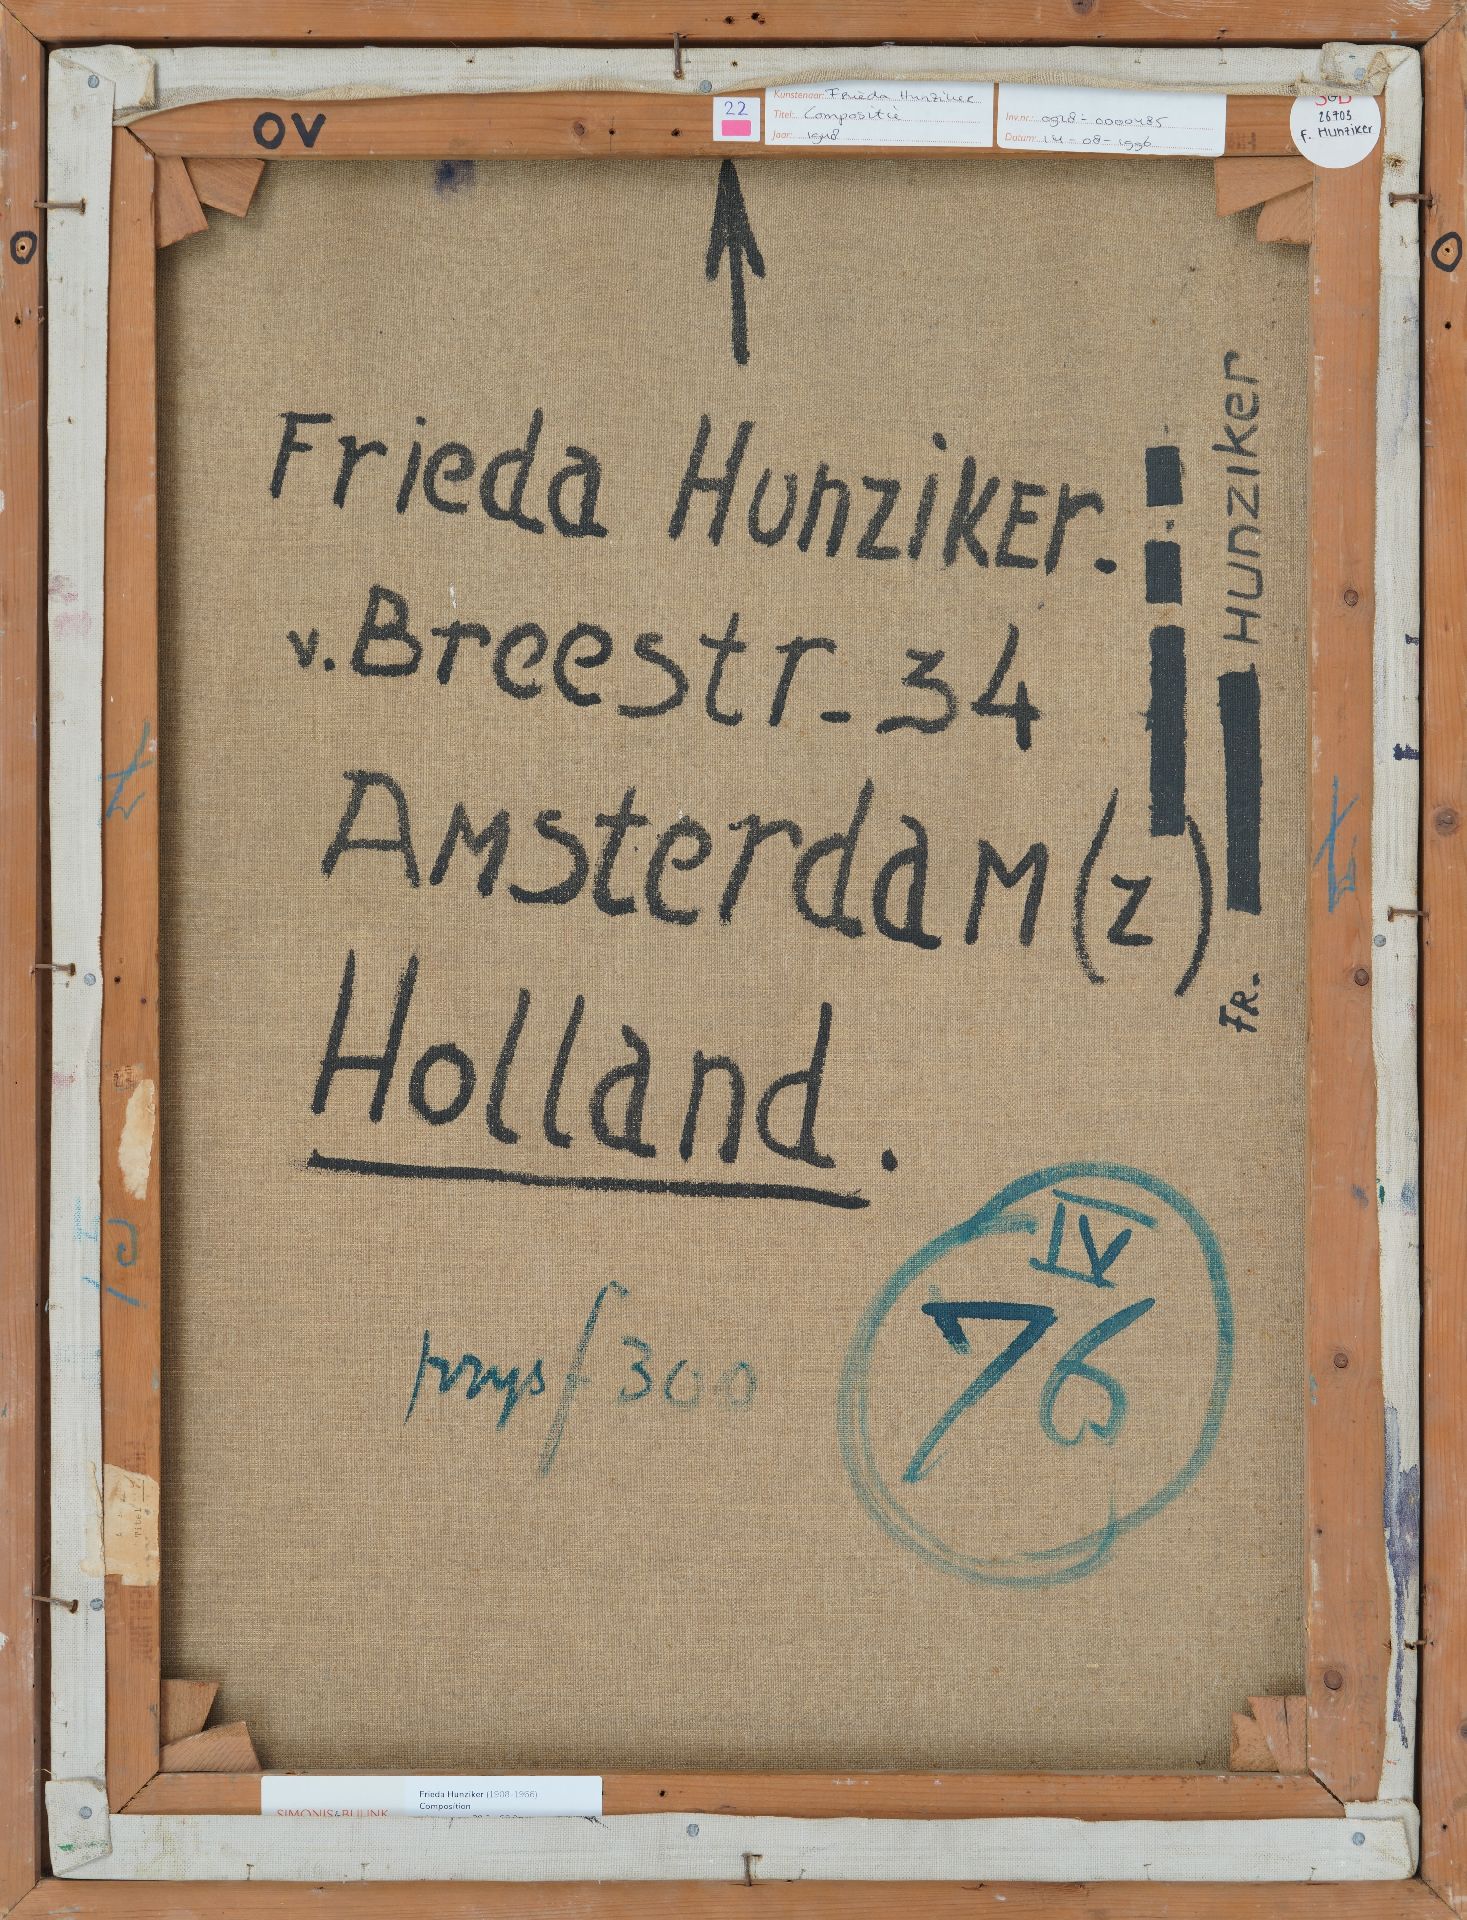 OV
22
Kunstenaar: Frieda Hunziker
Titel: Compositie
Jaar: 1948
Inv.nr.: 0928-0000485
Datum: 14-08-1996
S&B
26703
F. Hunziker
Frieda Hunziker.
v. Breestr. 34
Amsterdam (z)
Holland.
FR. Hunziker
prys f 300
IV
76
Titel
SIMONIS&BUUNK
Frieda Hunziker (1908-1966)
Composition